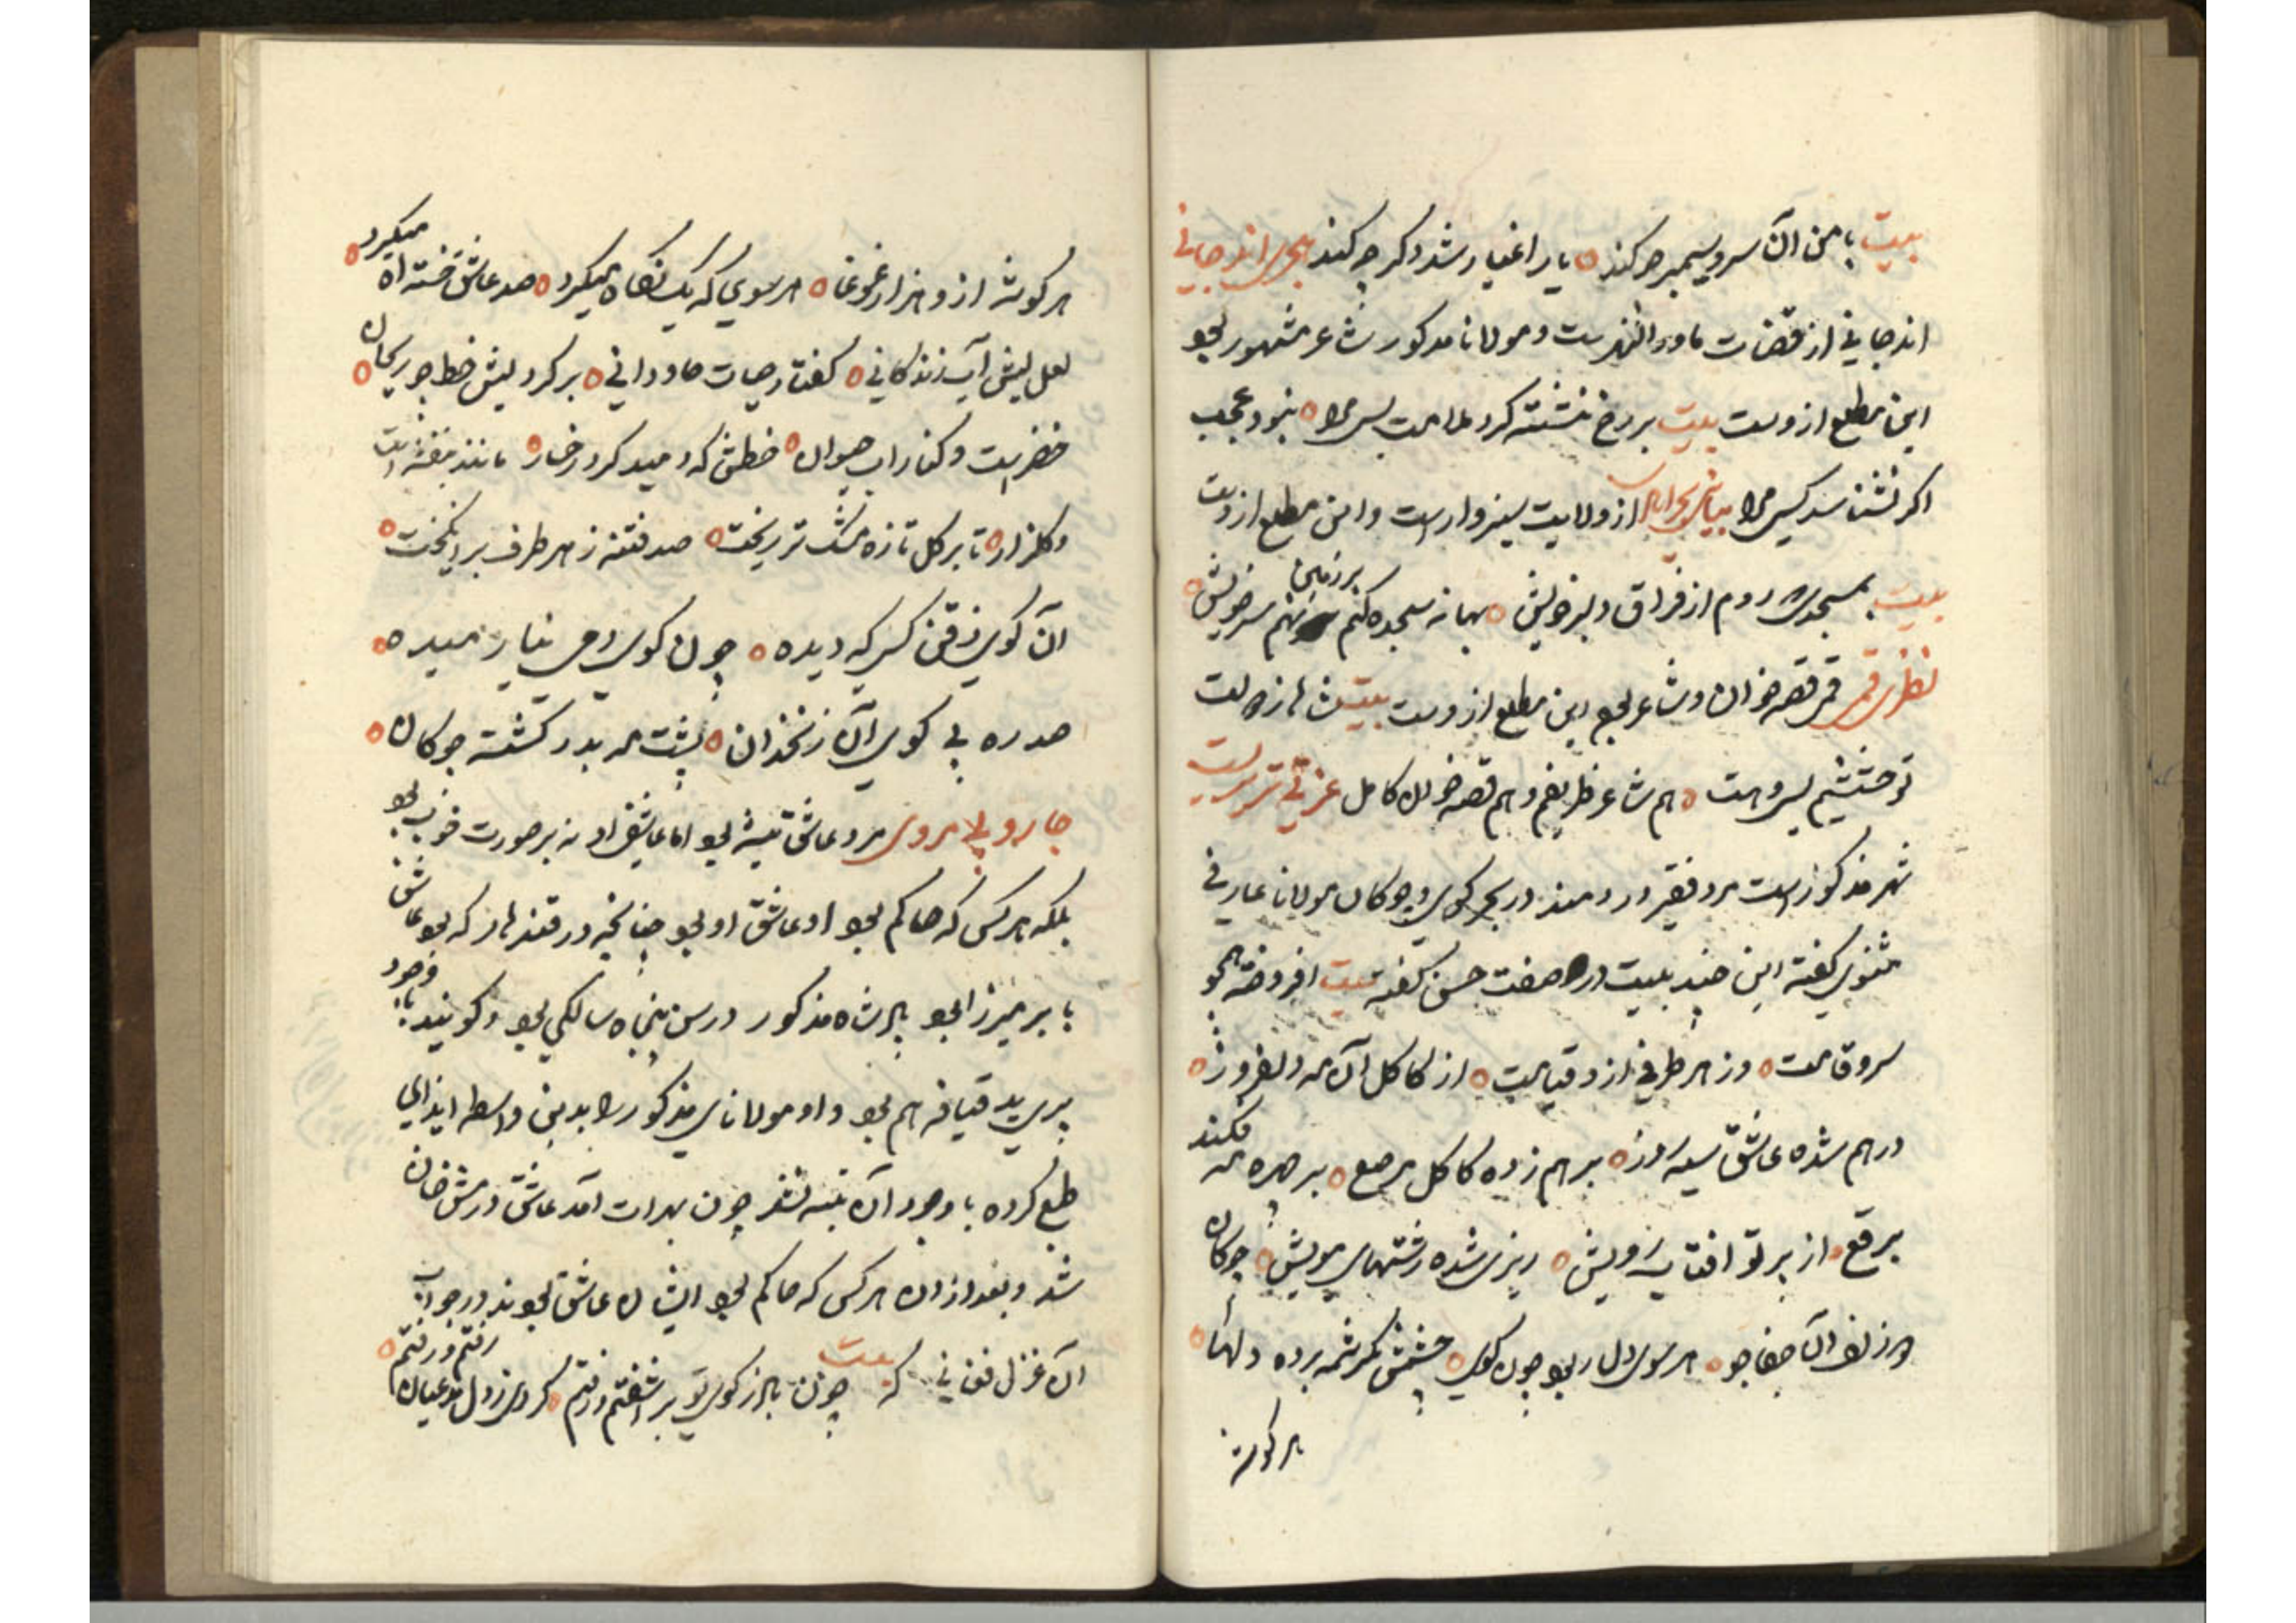 بیت با من آن سرو سیمبر چه کند ه یار اغیار شد دکر چه کند هجری اندجانی
اندجانی از قضات ماوراالنهرست و مولانا مذکور شاعر مشهور بود
این مطلع ازوست بیت بر رخ نشسته کرد ملامت بسی مرا ه نبود عجب
اکر نشناسد کسی مرا از ولایت سبزوارست و این مطلع ازوست
بیت بمسجدی روم از فراق دلبر خویش ه بهانه سجده کنم بر زمین نهم سر خویش ه
نظری قمی قمی قصه خوان و شاعر بود این مطلع ازوست بیت
هم شاعر ظریفم و هم قصه خوان کامل عزتی تبریزیست
شهر مذکورست مرد فقیر دردمند در بحر کوی و چوکان مولانا عارفی
مثنوی کفته این چند بیت در صفت حسن کفته بیت افروخته همچو
سرو قامت ه وز هر طرفی ازو قیامت ه از کاکل آن مه دلفروز ه
درهم شده عاشق سیه روز ه برهم زده کاکل مرصع ه بر چهره مه فکند
برقع ه از پرتو افتاب رویش ه رزی شده رشتهای مویش ه چوکان
ور زلف آن جفا جو ه هر سوی دل ربود چون کوی ه چشمش بکرشمه برده دلها ه
هر کوشه
هر کوشه ازو هزار غوغا ه هر سوی که یک نکاه میکرد ه صد عاشق خسته آه میکرد ه
لعل لبش آب زندکانی ه کفتار حیات جاودانی ه بر کرد لبش خط چو ریحان ه
خضرست و کنار آب حیوان ه خطش که دمید کرد رخسار ه مانند بنفشه است
و کلزار ه تا بر کل تازه مشک تر ریخت ه صد فتنه ز هر طرف برانکیخت ه
آن کوی ذقن کسی که دیده ه چون کوی دمی نیارمیده ه
صد ره پی کوی آن زنخدان ه پشت مه بدر کشته چوکان ه
جاروبی هروی مرد عاشق پیشه بود اما عاشقی او نه بر صورت خوب بود
بلکه هر کس که حاکم بود او عاشق او بود چنانچه در قندهار که بود عاشق
بابر میرزا بود پادشاه مذکور در سن پنجاه سالکی بود و کویند باوجود
قیافه هم بود و او مولانای مذکور را بدین واسطه ایذای
طبع کرده با وجود آن متنبه نشد چون بهرات آمد عاشق درمش خان
شد و بعد از ان هر کس که حاکم بود ایشان عاشق بودند در جواب
آن غزل فغانی که بیت چون باد ز کوی تو برآشفتم و رفتم ه کردی ز دل مدعیان رفتم و رفتم ه